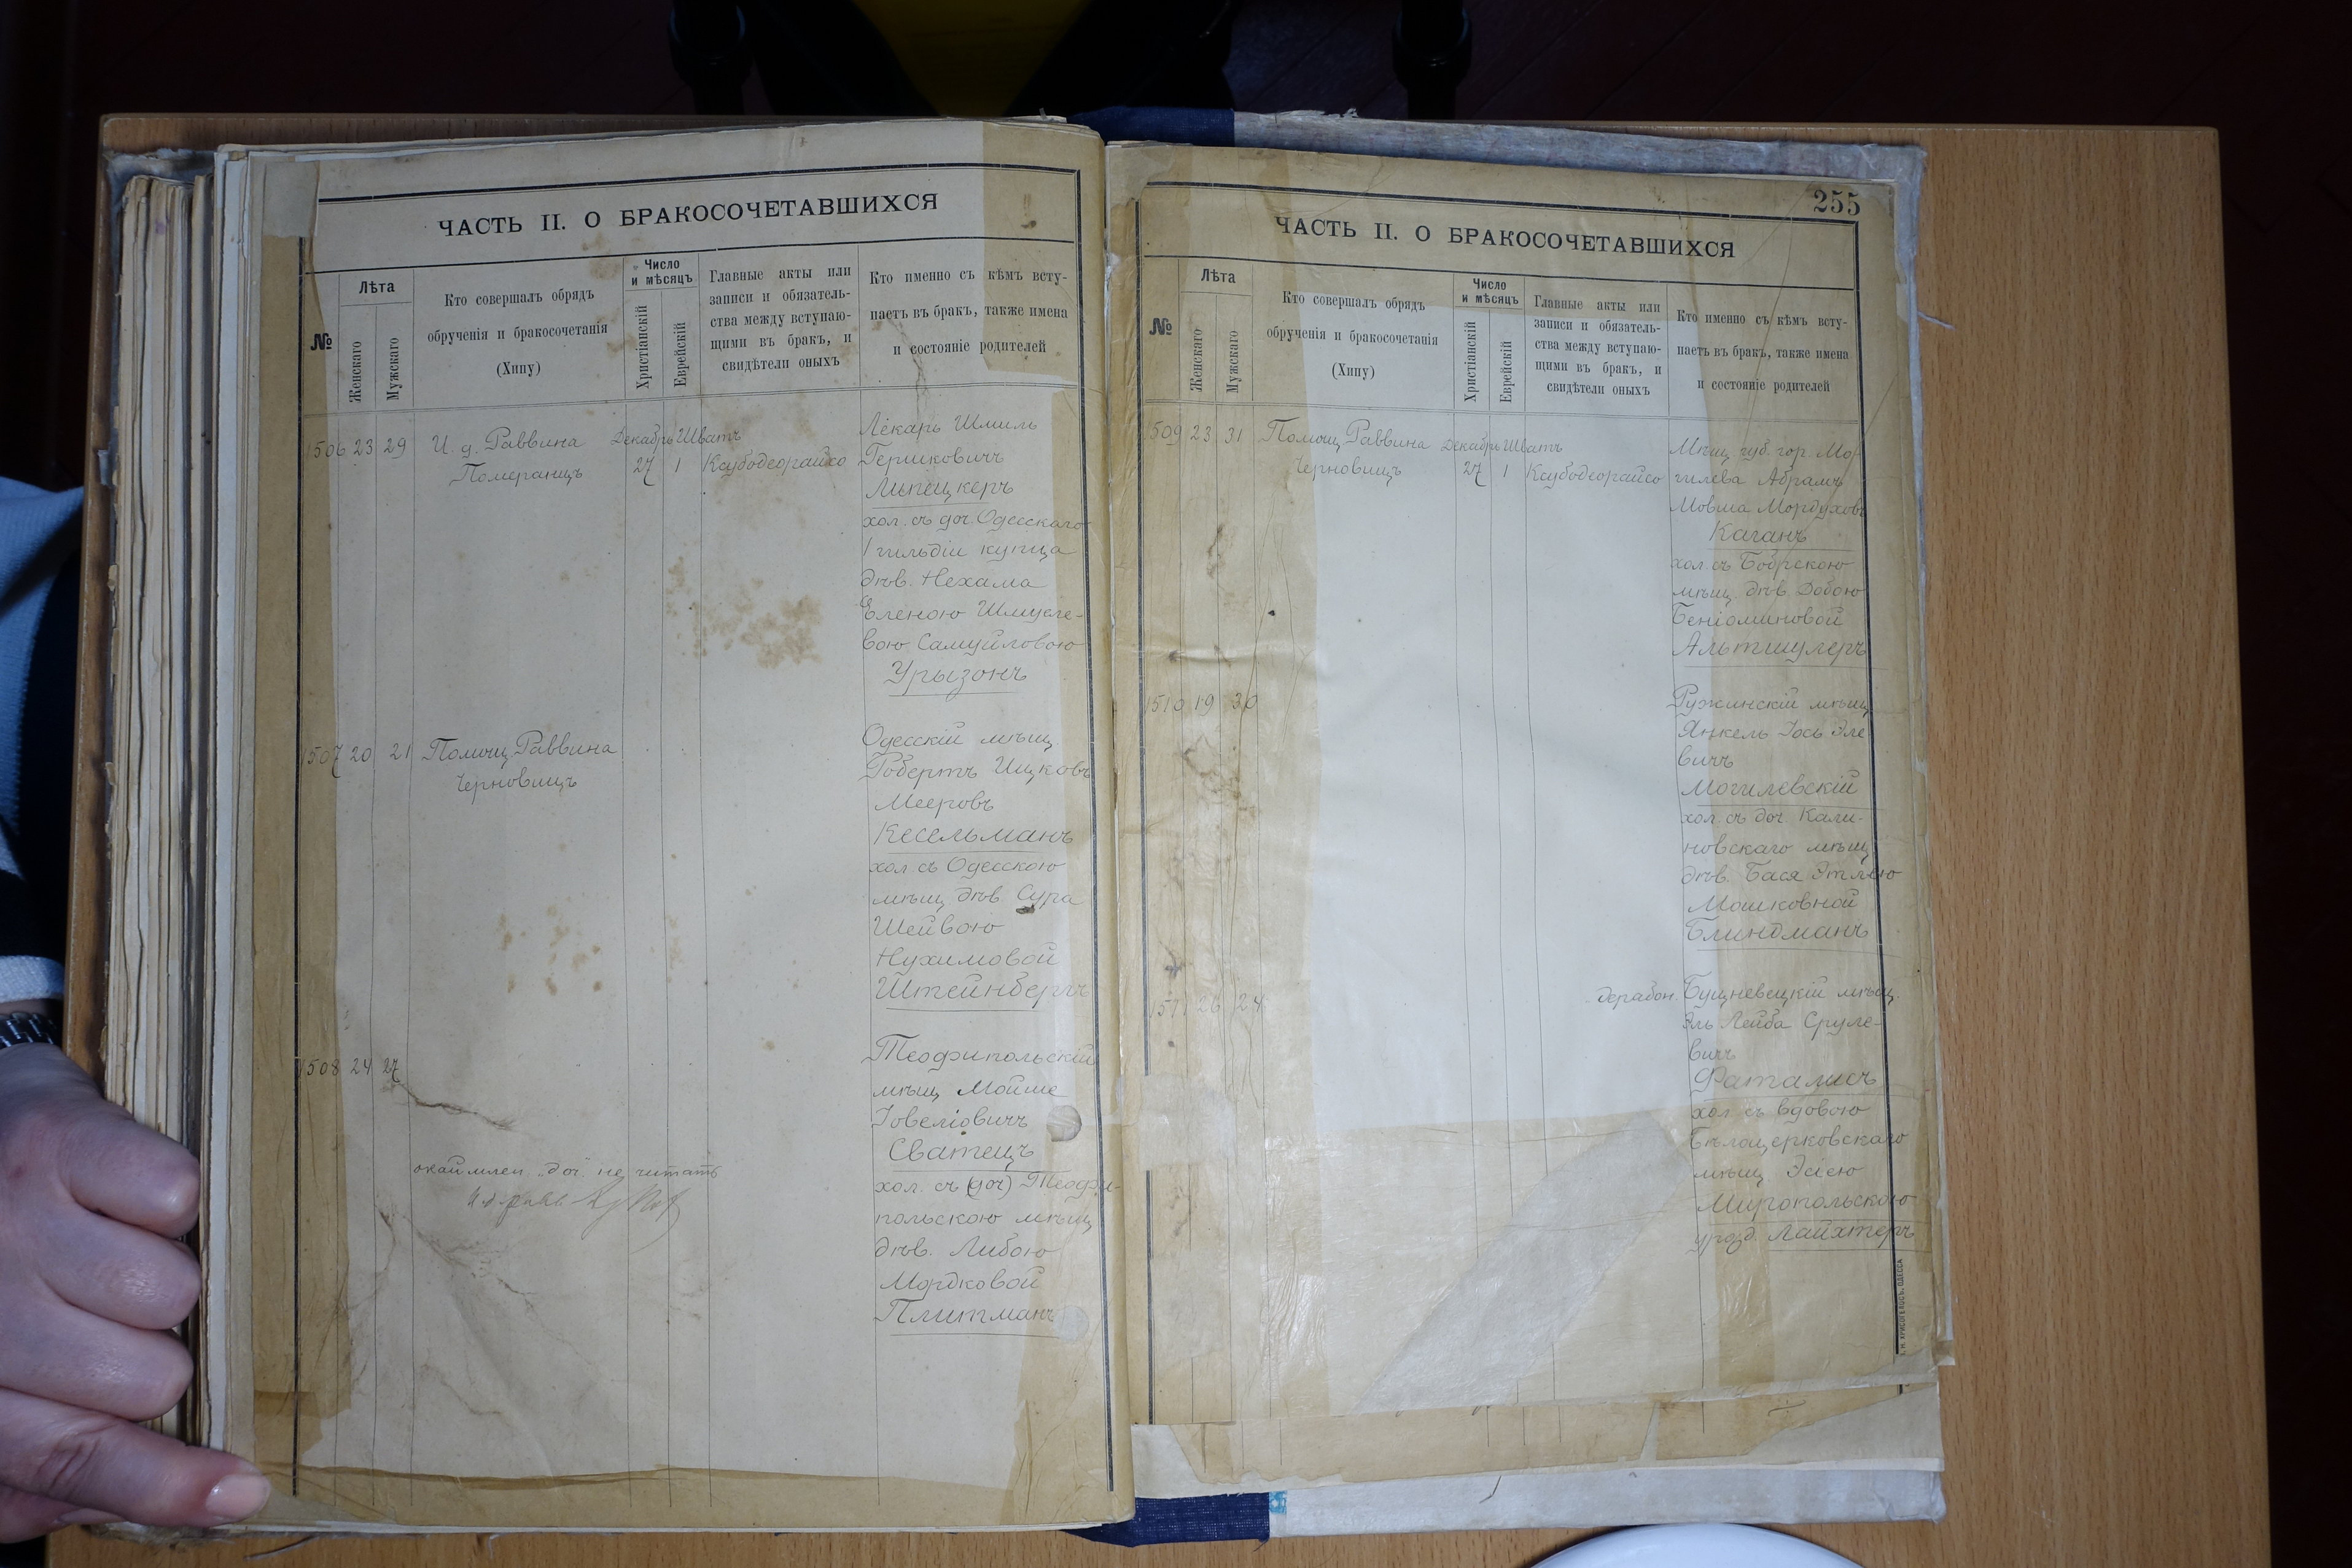 ЧАСТЬ II. О БРАКОСОЧЕТАВШИХСЯ
№
Лѣта
Женскаго
Мужскаго
Кто совершалъ обрядъ
обрученія и бракосочетанія
(Хипу)
Число
и мѣсяцъ
Христіанскій
Еврейскій
Главные акты или
записи и обязатель-
ства между вступаю-
щими въ бракъ, и
свидѣтели оныхъ
Кто именно съ кѣмъ всту-
паетъ въ бракъ, также имена
и состояніе родителей
1506 23 29
И. д. Раввина
Померанцъ
Декабрь Шватъ
27 1
Ксубодеорайсо
Лекарь Шмиль
Гершковичъ
Липецкеръ
хол. съ доч. Одесскаго
1 гильдіи купца
дѣв. Нехама
Еленою Шмуле-
вою Самуйловою
Урызонъ
1507 20 21
Помощ. Раввина
Черновицъ
Одесскій мѣщ
Робертъ Ицковъ
Мееровъ
Кесельманъ
хол. съ Одесскою
мѣщ дѣв Сура
Шейвою
Нухимовой
Штейнбергъ
1508 24 27
Теофипольскій
мѣщ Мойше
Іовеліовичъ
Сватецъ
хол. съ (доч) Теофи-
польскою мѣщ
дѣв. Либою
Мордковой
Плитманъ
окаймлен. „доч" не читать
255
ЧАСТЬ II. О БРАКОСОЧЕТАВШИХСЯ
№
Лѣта
Женскаго
Мужскаго
Кто совершалъ обрядъ
обрученія и бракосочетанія
(Хипу)
Число
и мѣсяцъ
Христіанскій
Еврейскій
Главные акты или
записи и обязатель-
ства между вступаю-
щими въ бракъ, и
свидѣтели оныхъ
Кто именно съ кѣмъ всту-
паетъ въ бракъ, также имена
и состояніе родителей
1509 23 31
Помощ Раввина
Черновицъ
Декабрь Шватъ
27 1
Ксубодеорайсо
Мѣщ губ. гор. Мо-
гилева Абрамъ
Мовша Мордуховъ
Каганъ
хол. съ Бобрскою
мѣщ дѣв. Добою
Беніоминовой
Альтшулеръ
1510 19 30
Ружинскій мѣщ
Янкель Іось Эле
вичъ
Могилевскій
хол. съ доч. Кали-
новскаго мѣщ
дѣв. Бася Этлею
Мошковной
Блиндманъ
1511 26 24
дерабон.
Бушневецкій мѣщ.
Эль Лейба Сруле-
вичъ
Фаталисъ
хол съ вдовою
Бѣлоцерковскаго
мѣщ Эсіею
Миропольскою
урожд. Лайхтеръ